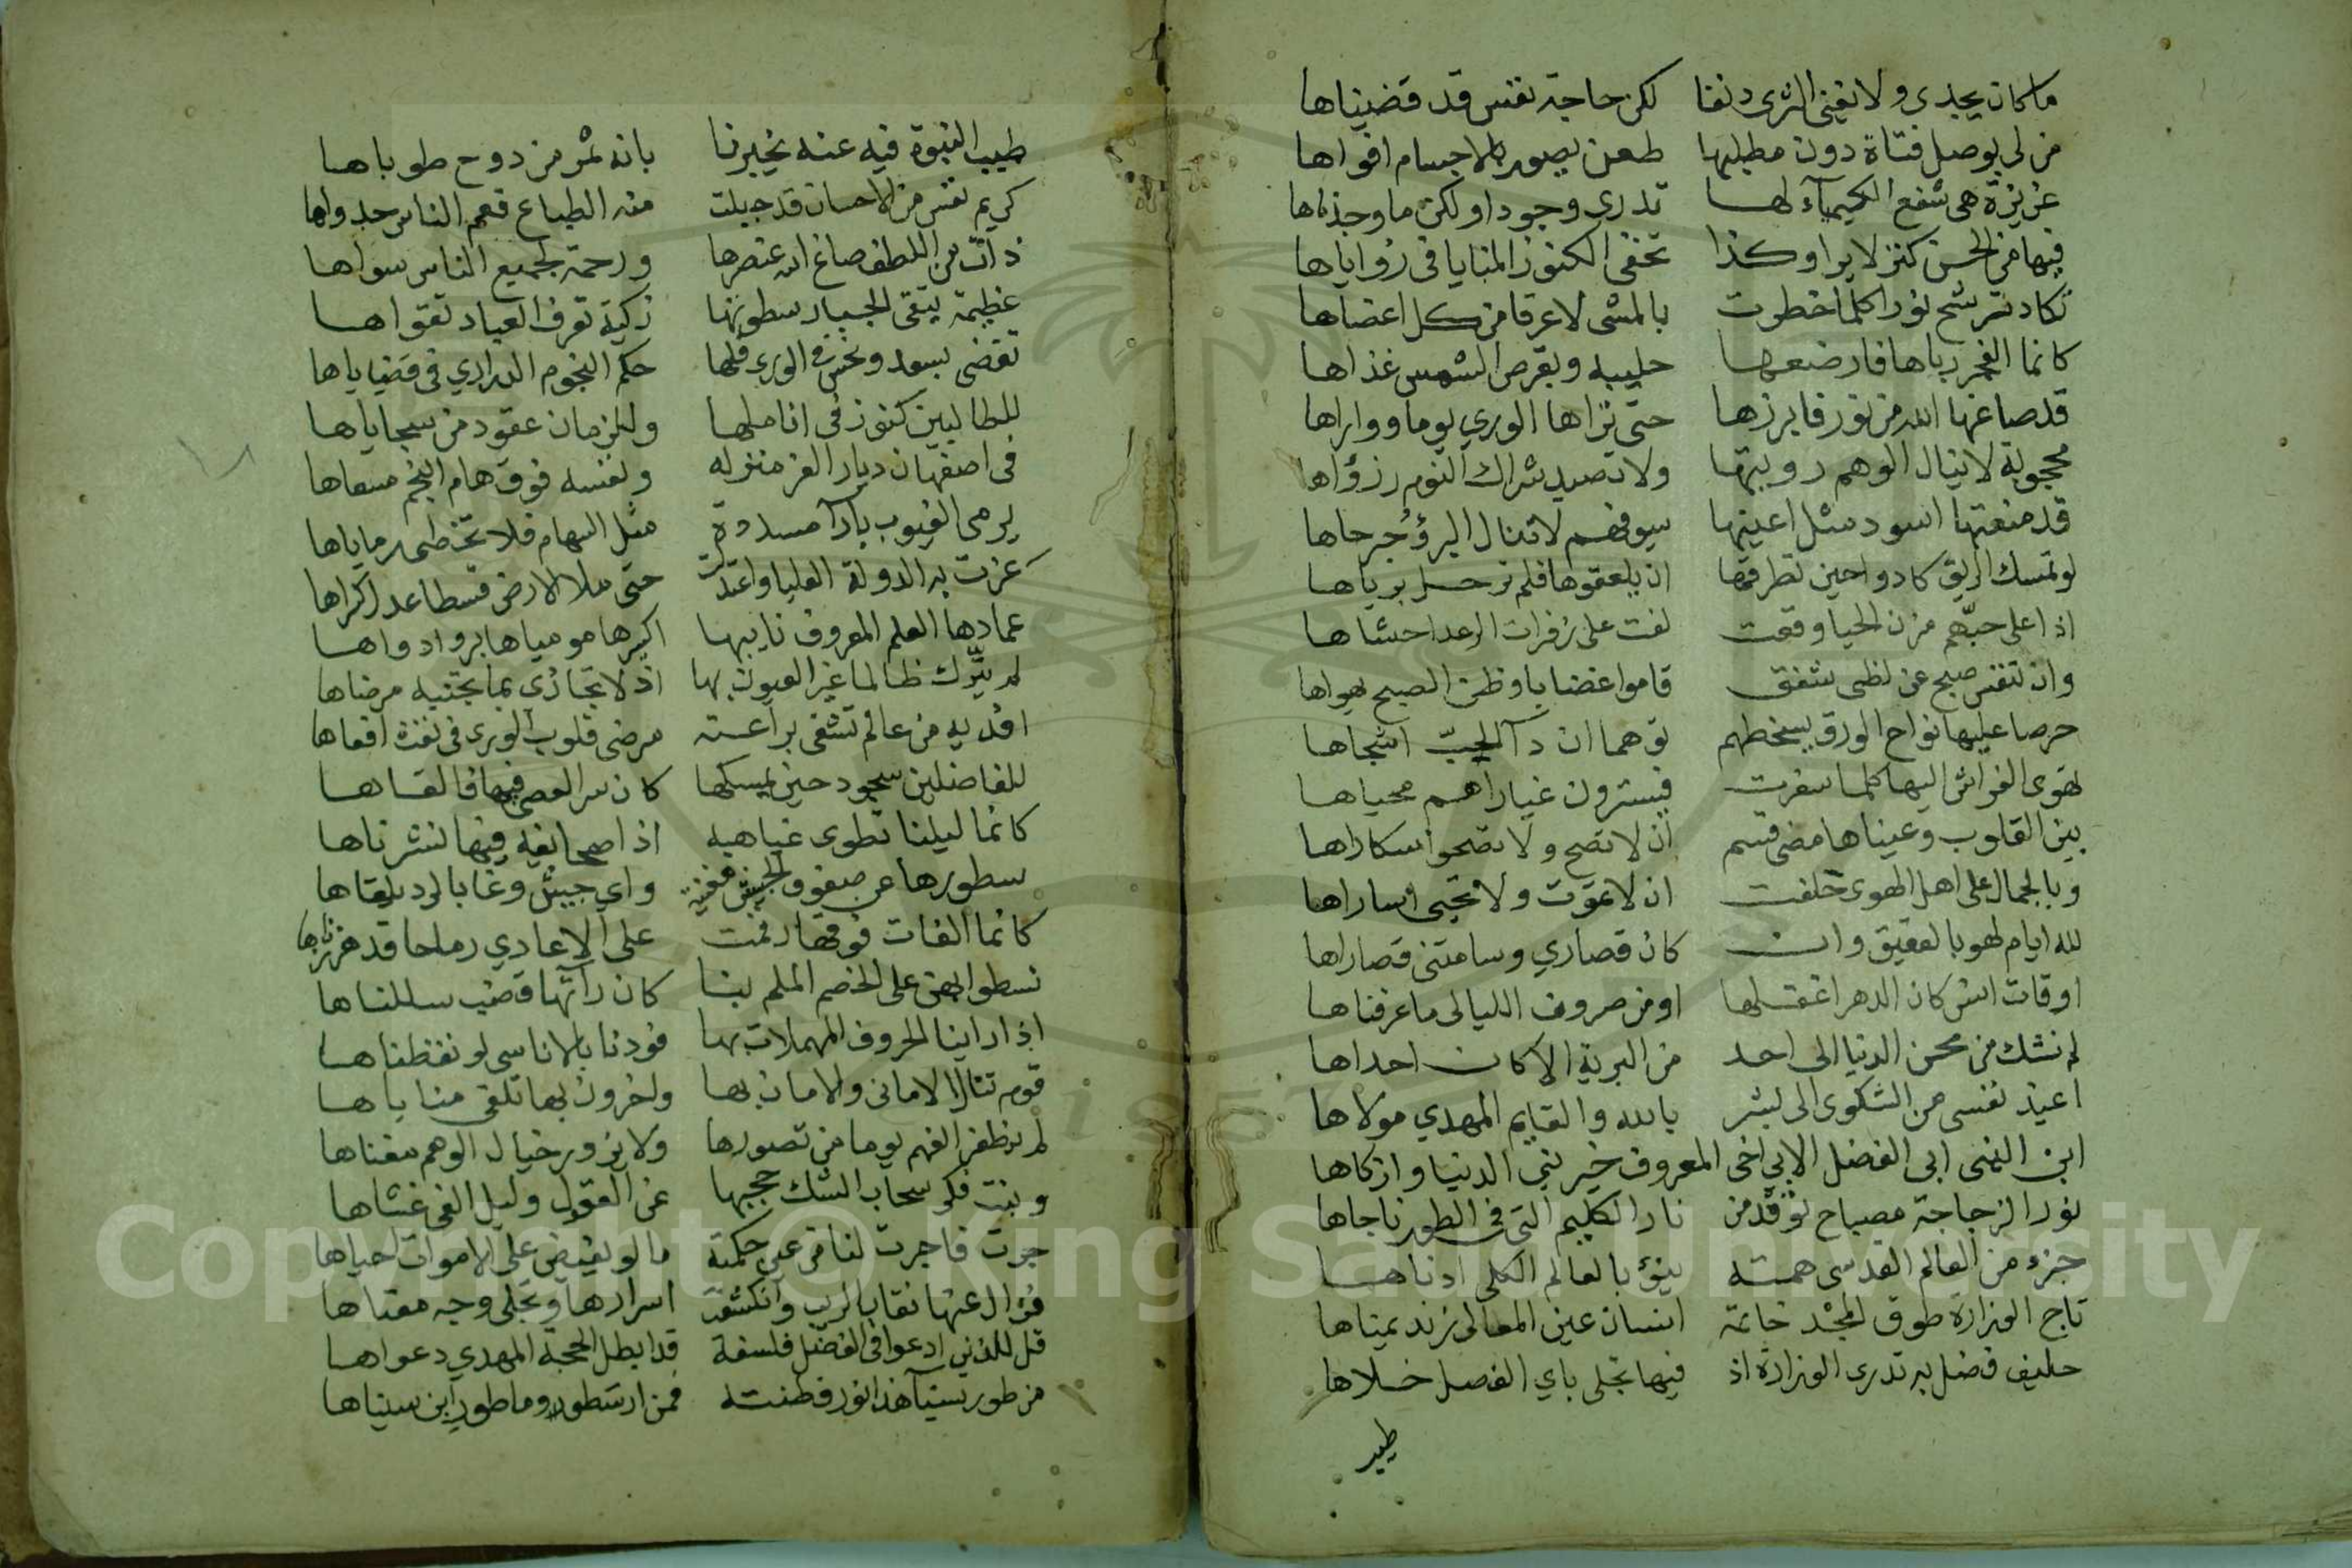 ما كان يجدى ولا يغنى الثرى دنفا لكن حاجة نفس قد قضيناها
من لى بوصل فتاة دون مطلبها طعن يصور بالاجسام افواها
عزيزة هى شفع الكيمياء لها تدرى وجودا ولكن ما وجدناها
فيها من الحسن كنز لا يرا وكذا تخفى الكنوز المنايا فى زواياها
تكاد ترشح نورا كلما خطرت بالمشى لا عرقا من كل اعضاها
كانما الفجر رباها فارضعها حليبه وبقرص الشمس غذاها
قد صاغها الله من نور فابرزها حتى تراها الورى يوما وواراها
محجوبة لا ينال الوهم رويتها ولا تصيد شراك النوم رؤاها
قد منعتها اسود مثل اعينها سيوفهم لا تنال البرؤ جرحاها
لو تمسك الريق كادوا حين تطرقها ان يلعقوها فلم ترحل برياها
اذا على حبهم مزن الحيا وقعت لفت على زفرات الرعد احشاها
وان تنفس صبح عن لظى شفق قاموا غضبا با وظن الصبح يهواها
حرصا عليها نواح الورق يسخطهم توهما ان دآ الحب اشجاها
تهوى الفراش اليها كلما سفرت فيسترون غيارا هم محياها
بين القلوب وعيناها مضى قسم ان لا تصح ولا تصحوا سكاراها
وبالجمال على اهل الهوى حلفت ان لا تموت ولا تحيى اساراها
لله ايام لهو بالعقيق وان كان قصاري وسامتنى قصاراها
اوقات انس كان الدهر اغفلها او من صروف الليالى ما عرفناها
لم نشك من محن الدنيا الى احد من البرية الا كان احداها
اعيذ نفسى من الشكوى الى بشر بالله والقايم المهدي مولاها
ابن النبى ابى الفضل الابي اخى المعروف خير بني الدنيا وازكاها
نور الزجاجة مصباح توقد من نار الكليم التى فى الطور ناجاها
جزء من العالم القدسى همته ينوء بالعالم الكلى ادناها
تاج الوزارة طوق المجد خاتمه انسان عين المعالى زند يمناها
حليف فضل به تدرى الوزارة اذ فيها تجلى باي الفضل حلاها
طيب
طيب النبوة فيه عنه يخبرنا بانه ثمر من دوح طوباها
كريم نفس من الاحسان قد جبلت منه الطباع فعم الناس جدواها
ذات من اللطف صاغ الله عنصرها ورحمة لجميع الناس سواها
عظيمة يتقى الجبار سطوتها زكية تعرف العباد تقواها
تقضى بسعد ونحس فى الورى فلها حكم النجوم الدراري فى قضاياها
للطالبين كنوز فى اناملها وللزمان عقود من سجاياها
فى اصفهان ديار العز منزله ونفسه فوق هام النجم مسعاها
يرمى الغيوب بارآ مسددة مثل السهام فلا تخطى رماياها
عزت به الدولة العليا واعتدلت حتى ملا الارض قسطا عدل كراها
عمادها العلم المعروف نايبها اكسيرها موميا ها برو ادواها
لم يترك ظالما غير العيون بها اذ لا تجازى بما تجنيه مرضاها
افديه من عالم تشفى براعته مرضى قلوب الورى فى نفثة افعاها
للفاضلين سجود حين يمسكها كان سر العصى فيها فالقاها
كانما ليلنا تطوى غياهبه اذا صحايفه فيها نشرناها
سطورها عن صفوف الجيش مغنية واي جيش وغا بالرد يلقاها
كانما الفات فوقها رقمت على الاعادي رماحا قد هززناها
نسطوا بهن على الخصم الملم بنا كان رآتها قضب سللناها
اذا راينا الحروف المهملات بها فودنا بالاناسى لو نقطناها
قوم تنال الامانى والامان بها واخرون بها تلقى مناياها
لم يظفر الفهم يوما من تصورها ولا يزور خيال الوهم مغناها
وبنت فكر سحاب الشك حجبها عن العقول وليل الغى غشاها
جرت فاجرت لنا من عين حكمته ما لو يفيض على الاموات احياها
فزال عنها نقاب الريب وانكشفت اسرارها وتجلى وجه معناها
قل للذين ادعوا فى الفضل فلسفة قد ابطل الحجة المهدي دعواها
من طور سينآ هذا نور فطنته فمن ارسطور وما طور ابن سيناها
Copyright © King Saud University
1957